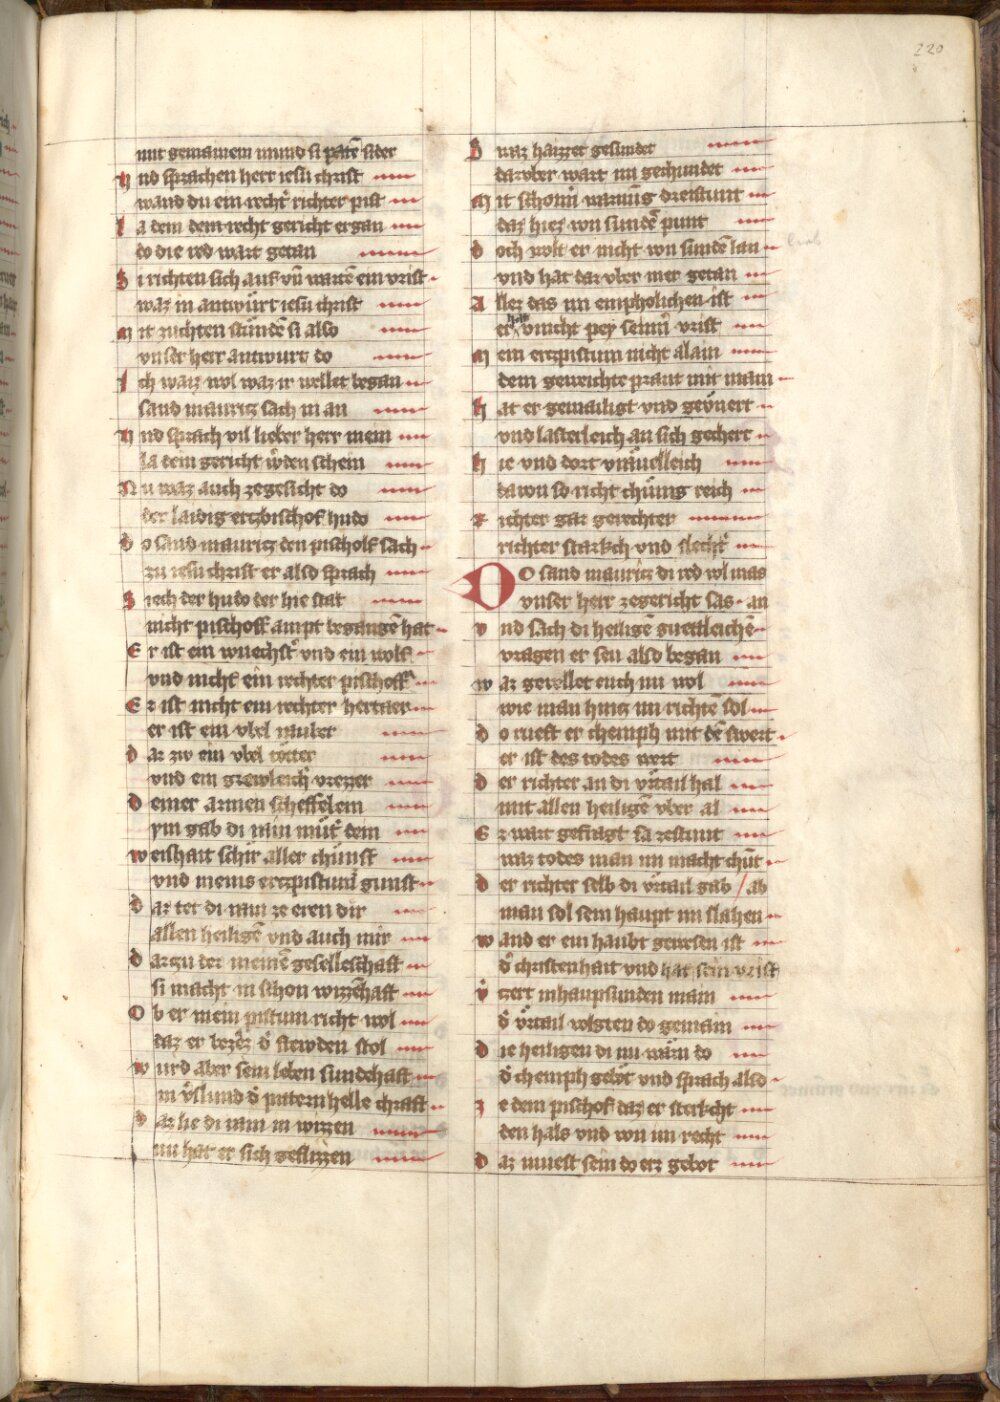 220
mit gemainem mund si paten sider
Vnd sprachen herr iesu christ
wand du ein recht richter pist
La dem dem recht gericht ergan
do die red wart getan
Si richten sich auf vn̄ warē ein vrist
waz in antwürt iesu christ
Mit zuchten stundē si also
vnser herr antwurt do
Ich waiz wol waz ir wellet began
sand mauritz sach in an
Vnd sprach vil lieber herr mein
la dem gericht werden schein
Nu waz auch zegesicht do
der laidig ertzbischof hudo
do sand mauritz den pischolf sach
zu iesu christ er also sprach
Sech der hudo der hie stat
nicht pischoff ampt begangē hat
Er ist ein wuechst vnd ein wolf
vnd nicht ein rechter pischoff
Er ist nicht ein rechter hertner
er ist ein vbel
daz zw ein vbel tötter
vnd ein grewleich vrezzer
deiner armen scheffelein
ym gab di min müt dein
weishait schir aller chünst
vnd meins ertzpistum gunst
daz tet di min ze eren dir
allen heiligē vnd auch mir
dartzu der meinē geselleschaft
si macht in schon wizzēhaft
Ob er mein pistum richt wol
daz er bezēr d stewden stol
wurd aber sein leben sundehaft
in v̈slund d pittern helle chraft
daz lie di min in wizzen
nu hat er sich geflizzen
Swaz haizzet gesundet
daruber wart im gechundet
Mit schonn warnūg dreistunt
daz hiez von sundē punt
doch wolt er nicht von sundē lan
vnd hat dar vber mer getan
Aller das im empholichen ist
er halt vnicht pey seinn vrist
Mein ertzpistum nicht alain
dem geweichte praut mit main
Hat er gemailigt vnd geünert
vnd lasterleich an sich gechert
Hie vnd dort
da von so richt chünig reich
Richter gar gerechter
richter starkch vnd slecht
DO sand mauritz di red vol mas
vnser herr zegericht sas an
vnd sach di heiligē guettleichē
vragen er seu also began
waz gevellet euch nu wol
wie man hintz im richtē sol
do rueft er chemph mit dē swert
er ist des todes wert
der richter an di v̈rtail hal
mit allen heiligē vber al
Er wart gefragt sa zestunt
waz todes man im macht chūt
der richter selb di v̈rtail gab / ab
man sol sein haupt im slahen
wand er ein haubt gewesen ist
d christenhait vnd hat sein vrist
v̈tzert inhaupsunden main
d v̈rtail volgten do gemain
die heiligen di nu wārn do
d chemph gebot vnd sprach also
ze dem pischof daz er sterkcht
den hals vnd von im recht
daz muest sein do erz gebot